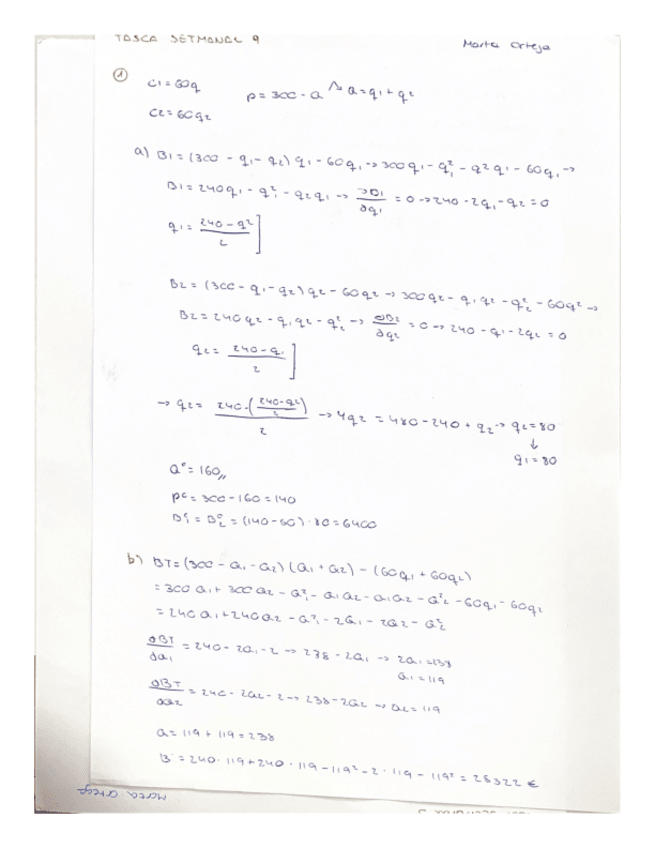 TASCA SETMANAL 9
Marta Ortega
① C1=60q
P=300-Q ↝ Q=q1+q2
C2=60q2
a) B1=(300-q1-q2)q1-60q1→300q1-q1²-q2q1-60q1→
B1=240q1-q1²-q2q1→ ∂B1/∂q1 =0→240-2q1-q2=0
q1= (240-q2)/2 ]
B2=(300-q1-q2)q2-60q2→300q2-q1q2-q2²-60q2→
B2=240q2-q1q2-q2²→ ∂B2/∂q2 =0→240-q1-2q2=0
q2= (240-q1)/2 ]
→q2= (240-((240-q2)/2))/2 →4q2=480-240+q2→q2=80
↓
q1=80
Qc=160,,
Pc=300-160=140
B1c=B2c=(140-60)·80=6400
b) BT=(300-Q1-Q2)(Q1+Q2)-(60q1+60q2)
=300Q1+300Q2-Q1²-Q1Q2-Q1Q2-Q2²-60q1-60q2
=240Q1+240Q2-Q1²-2Q1-2Q2-Q2²
∂BT/∂Q1 =240-2Q1-2→238-2Q1→2Q1=238
Q1=119
∂BT/∂Q2 =240-2Q2-2→238-2Q2→Q2=119
Q=119+119=238
B=240·119+240·119-119²-2·119-119²=28322€
Marta Ortega